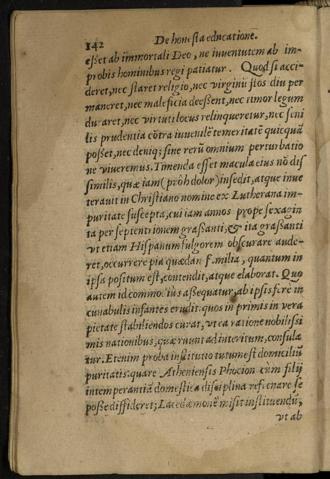 142 De honesta educatione.
esset ab immortali Deo, ne iuuentutem ab im-
probis hominibus regi patiatur. Quod si acci-
deret, nec staret religio, nec virginũ flos diu per
maneret, nec maleficia deessent, nec timor legum
duraret, nec virtuti locus relinqueretur, nec seni
lis prudentia cõtra iuuenilẽ temeritatẽ quicquã
posset, nec deniq; sine rerũ omnium perturbatio
ne viueremus. Timenda esset macula eius nõ dis
similis, quæ iam (proh dolor) insedit, atque inue
terauit in Christiano nomine ex Lutherana im-
puritate suscepta, cui iam annos prope sexagin
ta per septentrionem grassanti, & ita grassanti
vt etiam Hispanum fulgorem obscurare aude-
ret, occurrere pia quædam familia, quantum in
ipsa positum est, contendit, atque elaborat. Quo
autem id commodius assequatur, ab ipsis ferè in
cunabulis infantes erudit: quos in primis in vera
pietate stabiliendos curat, vt ea ratione nobilissi
mis nationibus, quæ ruunt ad interitum, consula
tur. Etenim proba institutio tutum est domiciliũ
puritatis: quare Atheniensis Phocion cum filij
intemperantiã domestica disciplina refrenare se
posse diffideret; Lacedæmonẽ misit instituendũ,
vt ab